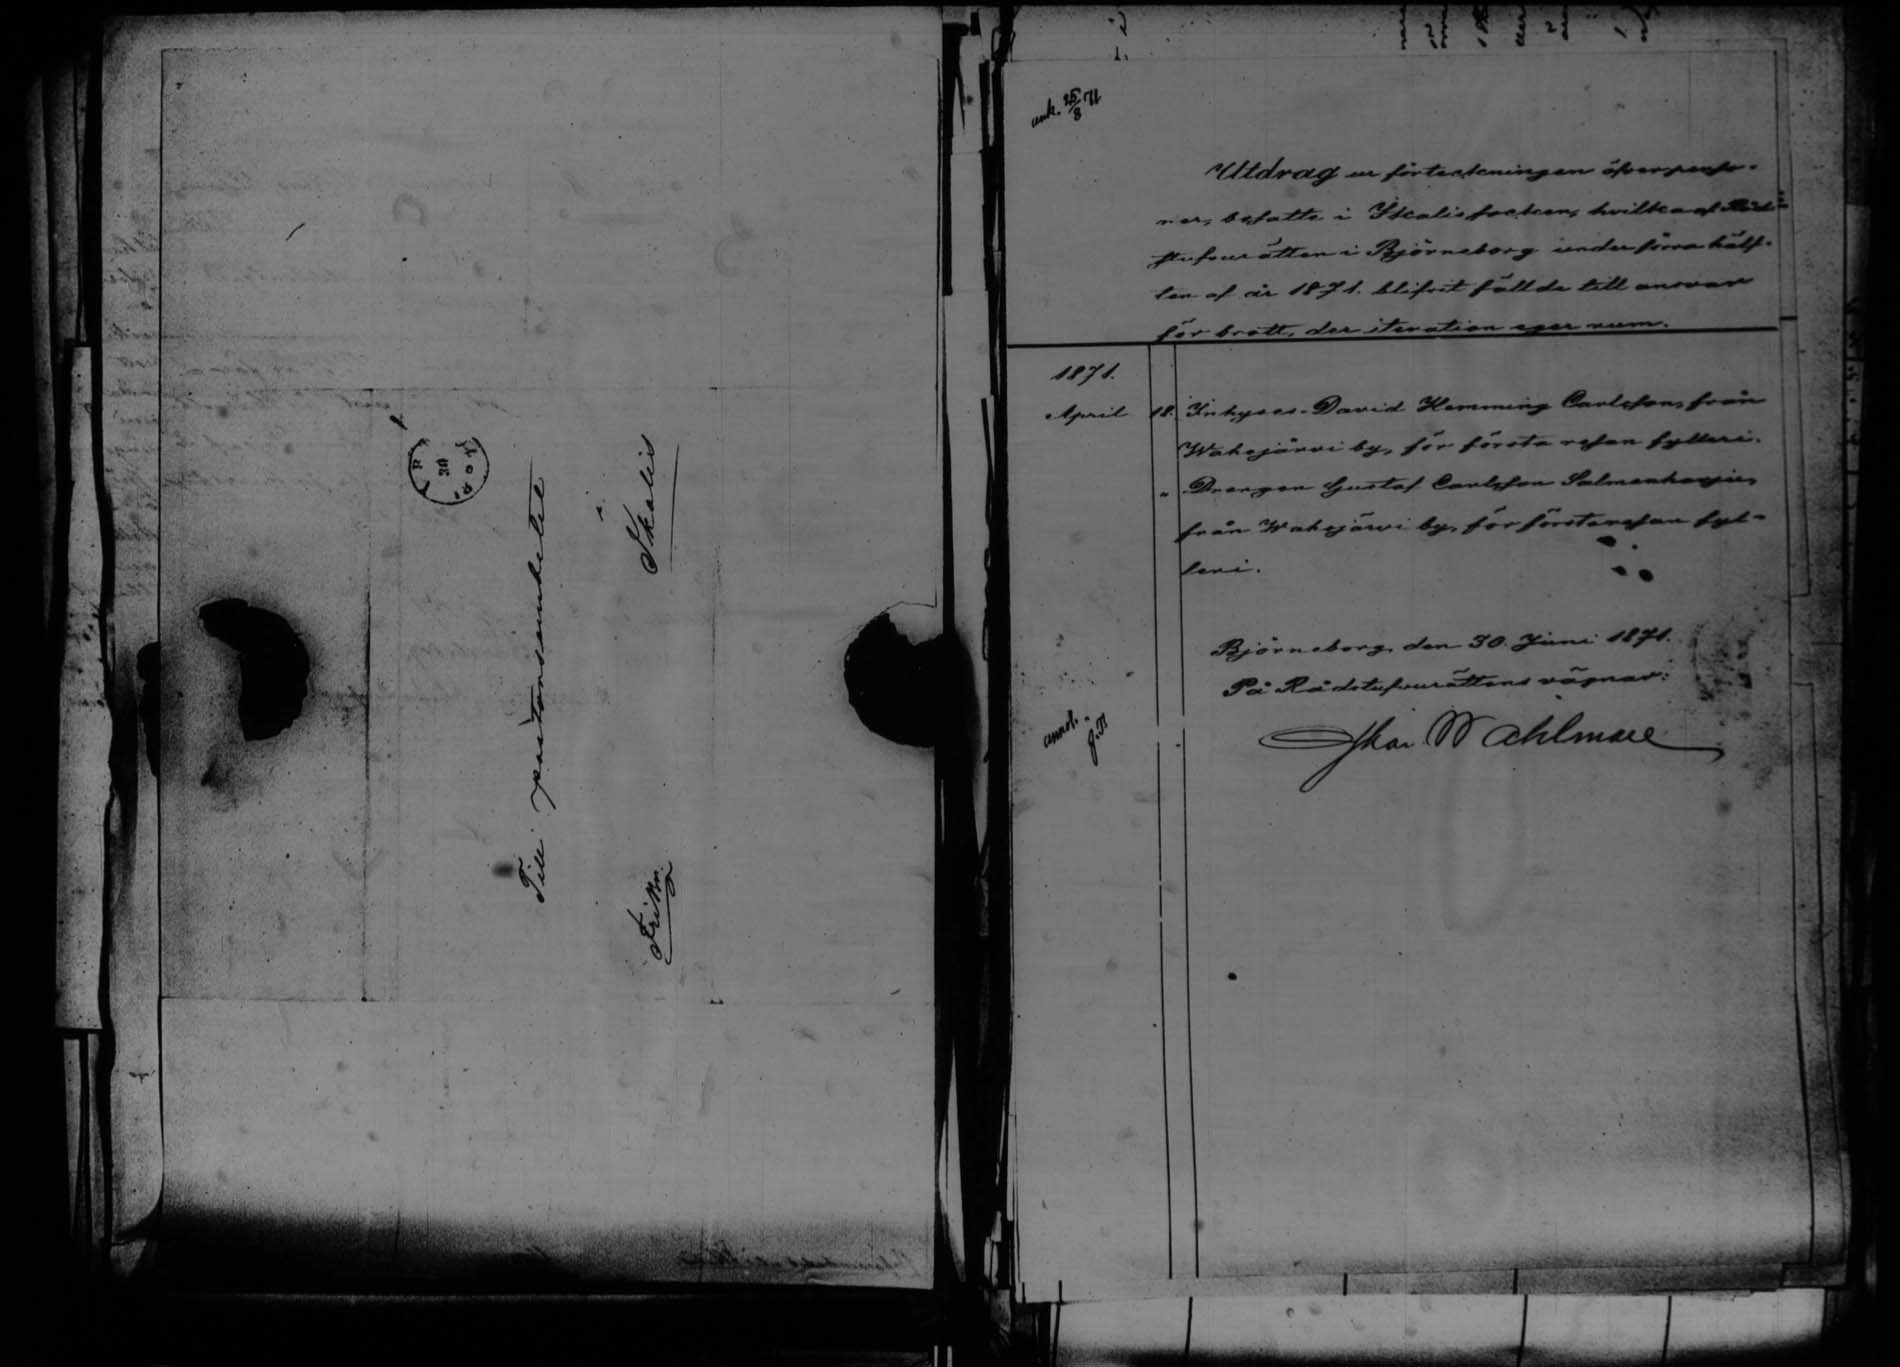 Till pastorsembetet
i
Ikalis
Frikn.
ank. 25/8 71
Utdrag ur förteckningen öfver perso-
ner, bosatte i Ikalis socken, hvilka af Råd-
stufvurätten i Björneborg under förra hälf-
ten af år 1871. blifvit fällde till ansvar
för brott, der iteration eger rum.
1871.
April 18. Inhyses-David Hemming Carlsson, från
Wahojärvi by, för första resan fylleri.
" Drengen Gustaf Carlsson Salmenharju,
från Wahojärvi by, för första resan fyl-
leri.
Björneborg, den 30. Juni 1871.
På Rådstufvurättens vägnar:
annot.